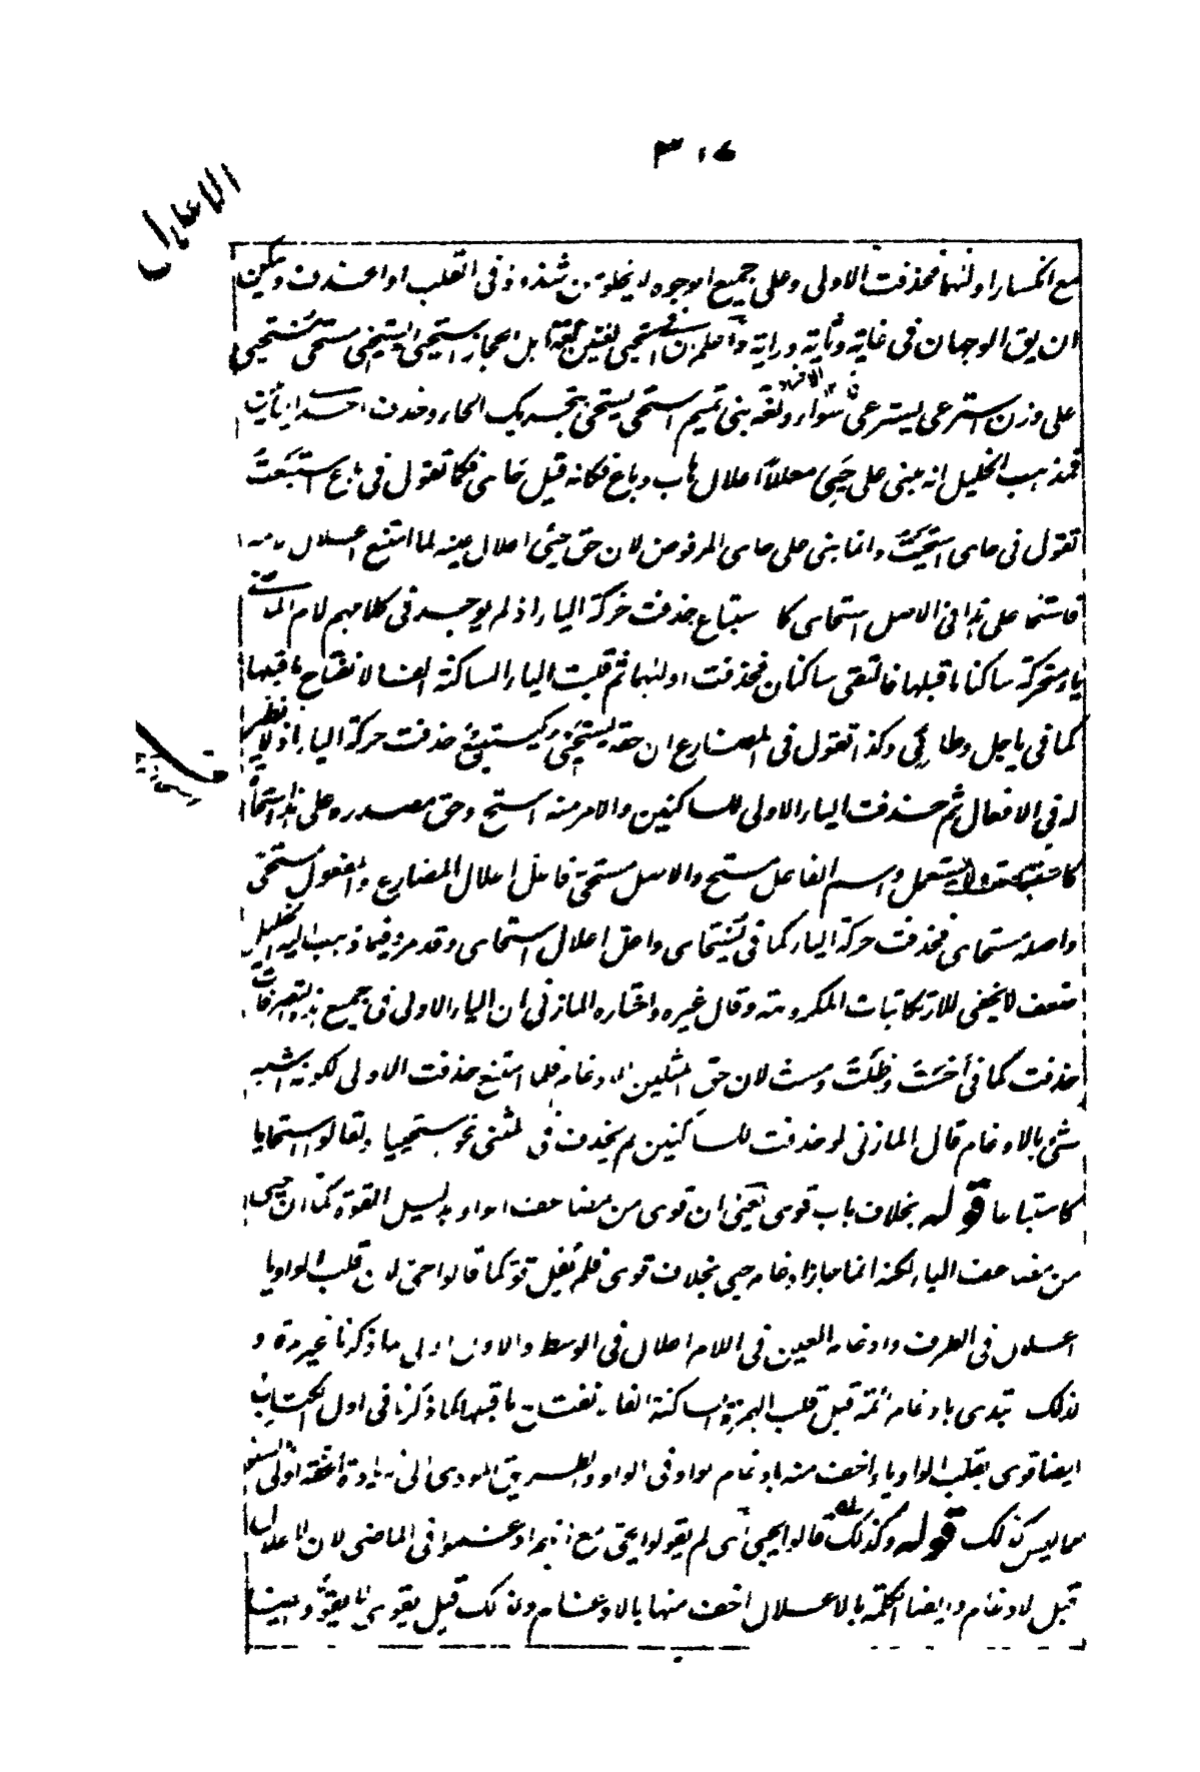 ٣٠٧
الاعلال
مع انكسار اولهما فحذفت الاولى وعلى جميع الوجوه لا يخلو من شذوذ فى القلب او الحذف ويمكن
ان يق الوجهان فى غاية وثاية وراية واعلم ان فى استحيى لغتين لغة اهل الحجاز استحيى يستحيى مستحى مستحيى
على وزن استرعى يسترعى سواء ولغة بنى تميم استحى يستحى بتحريك الحاء وحذف احدى اليائين
فمذهب الخليل انه مبنى على حيى معلا اعلال هاب وباع فكانه قيل حاى فكما تقول فى باع استبعت
تقول فى حاى استحيت وانما بنى على حاى المرفوض لان حق حيى اعلال عينه لما امتنع اعلال لامه
فاستحا على هذا فى الاصل استحاى كاستباع حذفت حركة الياء اذ لم يوجد فى كلامهم لام الماضى
ياء متحركة ساكنا ما قبلها فالتقى ساكنان فحذفت اولهما ثم قلبت الياء الساكنة الفا لانفتاح ما قبلها
كما فى ياجل وطائى وكذا تقول فى المضارع ان حقه يستحيى كيستبيع حذفت حركة الياء اذ لا نظير
له فى الافعال ثم حذفت الياء الاولى للساكنين والامر منه استح وحق مصدره على هذا استحاة
كاستباعة ولا يستعمل واسم الفاعل مستح والاصل مستحيى فاعل اعلال المضارع والمفعول مستحى
واصله مستحاى فحذفت حركة الياء كما فى يستحاى واعل اعلال استحاى وقد مر وفيما ذهب اليه الخليل
ضعف لا يخفى للارتكابات المكروهة وقال غيره واختاره المازنى ان الياء الاولى فى جميع هذه التصرفات
حذفت كما فى احست وظلت ومست لان حق المثلين الادغام فلما امتنع حذفت الاولى لكونه اشبه
شئ بالادغام قال المازنى لو حذفت للساكنين لم يحذف فى المثنى نحو استحيا ولقالوا استحايا
كاستباعا قوله بخلاف باب قوى يعنى ان قوى من مضاعف الواو بدليل القوة كما ان حيى
من مضاعف الياء لكنه انما جاز ادغام حيى بخلاف قوى فلم يقل قو كما قالوا حى لان قلب الواو يا
اعلال فى الطرف وادغام العين فى اللام اعلال فى الوسط والاول اولى ما ذكرنا غير مرة و
لذلك تبدى بادغام ائمة قبل قلب الهمزة الساكنة الفا لانفتاح ما قبلها كما ذكرنا فى اول الكتاب
ايضا قوى بقلب الواو ياء اخف منه بادغام الواو فى الواو والطريق المودى الى زيادة الخفة اولى
مما ليس كذلك قوله وكذلك قالوا يحيى اى لم يقولوا يحى مع انهم ادغموا فى الماضى لان الاعلال
قبل الادغام وايضا الكلمة بالاعلال اخف منها بالادغام ولذلك قيل يقوى لا يقو وايضا